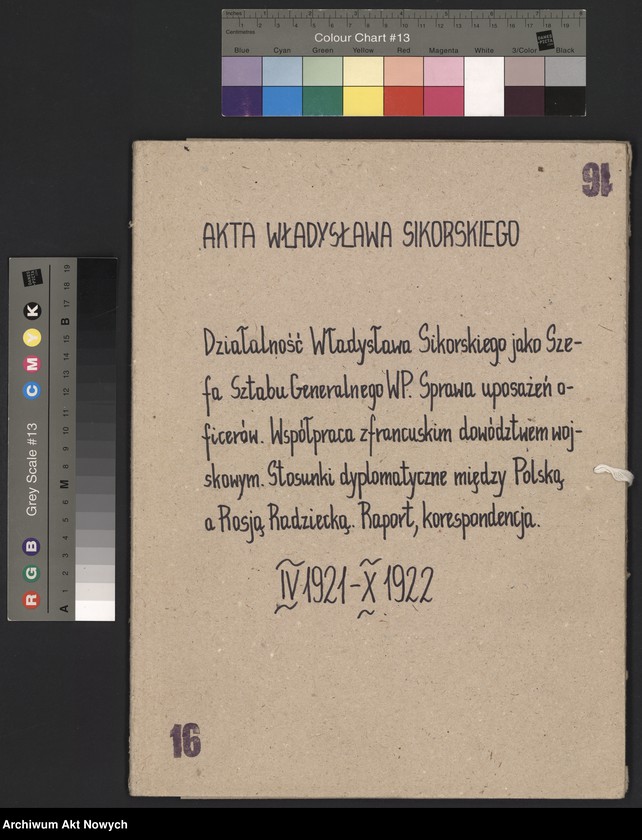 Inches 1 2 3 4 5 6 7 8
Centimetres 1 2 3 4 5 6 7 8 9 10 11 12 13 14 15 16 17 18 19
Colour Chart #13
Blue Cyan Green Yellow Red Magenta White 3/Color Black
16
AKTA WŁADYSŁAWA SIKORSKIEGO
Działalność Władysława Sikorskiego jako Sze-
fa Sztabu Generalnego WP. Sprawa uposażeń o-
ficerów. Współpraca z francuskim dowództwem woj-
skowym. Stosunki dyplomatyczne między Polską
a Rosją Radziecką. Raport, korespondencja.
IV 1921 - X 1922
16
R G B Grey Scale #13 C M Y K
A 1 2 3 4 5 6 M 8 9 10 11 12 13 14 15 B 16 17 18 19
Archiwum Akt Nowych